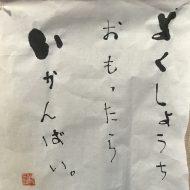 よくしょうち
おもったら
いかんばい。